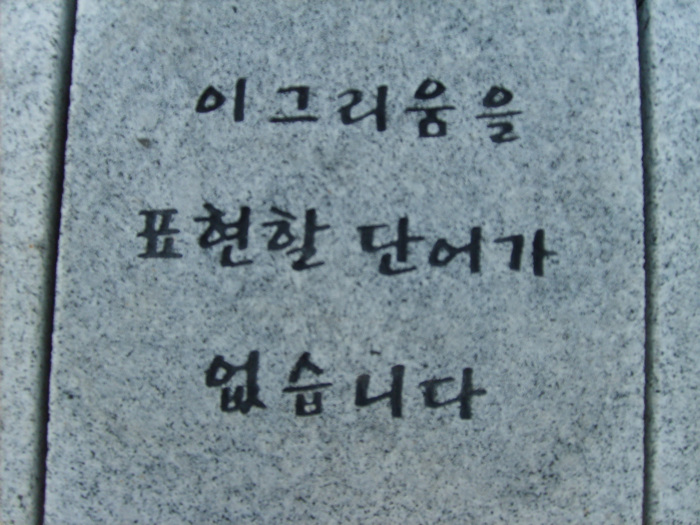 이 그리움을
표현할 단어가
없습니다